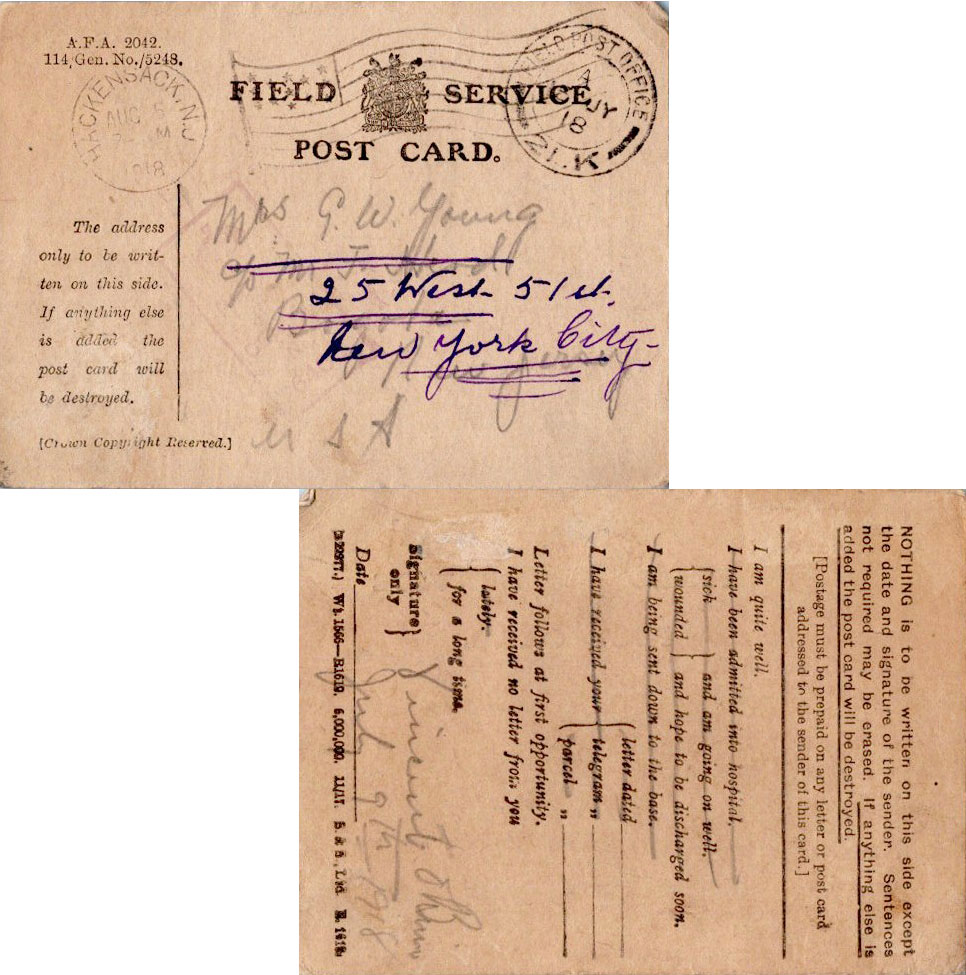 A.F.A. 2042.
114/Gen. No./5248.
HACKENSACK, N.J.
AUG 5
M
1918
FIELD SERVICE
POST CARD.
FIELD POST OFFICE
A
JY
18
The address
only to be writ-
ten on this side.
If anything else
is added the
post card will
be destroyed.
[Crown Copyright Reserved.]
Mrs G. W. Young
c/o Mr
25 West 51 st.
New York City
New Jersey
U S A
NOTHING is to be written on this side except
the date and signature of the sender. Sentences
not required may be erased. If anything else is
added the post card will be destroyed.
[Postage must be prepaid on any letter or post card
addressed to the sender of this card.]
I am quite well.
I have been admitted into hospital.
{ sick } and am going on well.
{ wounded } and hope to be discharged soon.
I am being sent down to the base.
I have received your { letter dated
telegram „
parcel „
Letter follows at first opportunity.
I have received no letter from you
{ lately.
for a long time.
Signature }
only
Vincent
Date July 9th 1918
Wt.1566—R1619. 6,000,000. 11/17.